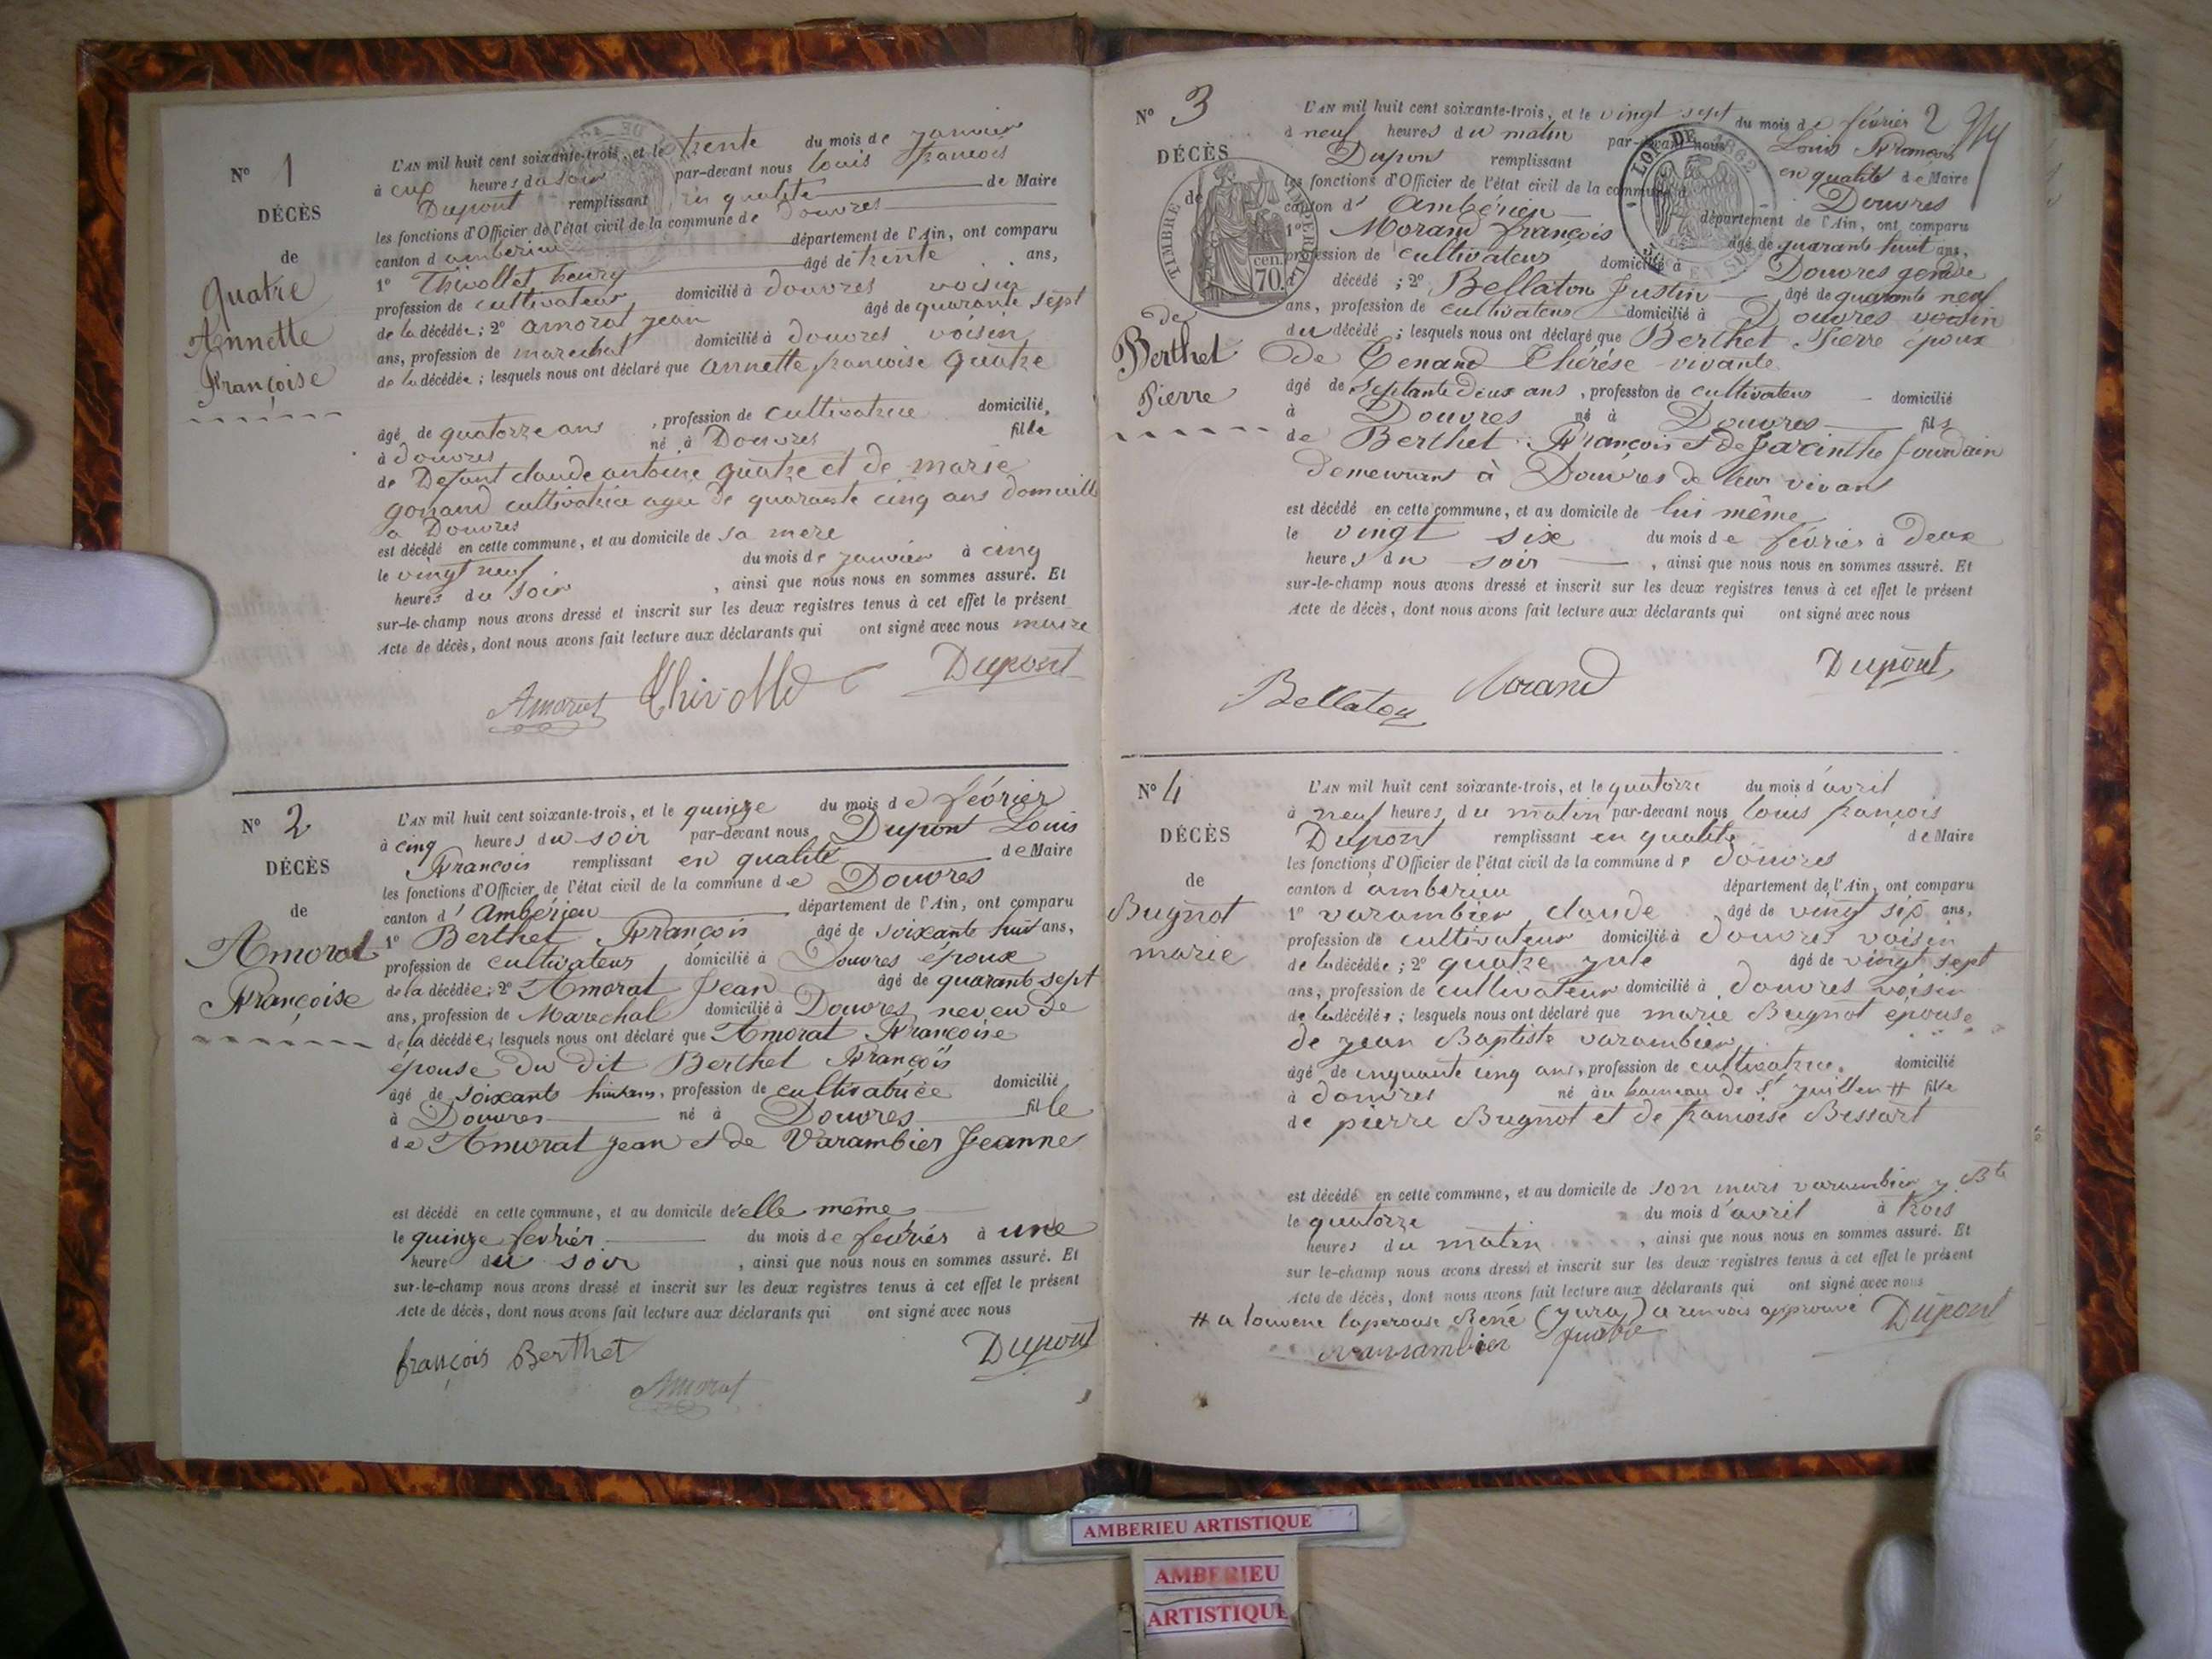 N° 1
DÉCÈS
de
Quatre
Annette
Françoise
L'AN mil huit cent soixante-trois, et le trente du mois de janvier
à cinq heures du soir par-devant nous louis francois
Dupont remplissant en qualité de Maire
les fonctions d'Officier de l'état civil de la commune de douvres
canton d amberieu département de l'Ain, ont comparu
1° Thivollet henry âgé de trente ans,
profession de cultivateur domicilié à douvres voisin
de la décédée; 2° amorat jean âgé de quarante sept
ans, profession de marechal domicilié à douvres voisin
de la décédée; lesquels nous ont déclaré que annette francoise quatre
âgé de quatorze ans, profession de cultivatrice domicilié,
à douvres né à Douvres fille
de Defunt claude antoine quatre et de marie
gonand cultivatrice agee de quarante cinq ans domicilié
a Douvres
est décédé en cette commune, et au domicile de sa mere
le vingt neuf du mois de janvier à cinq
heures du soir, ainsi que nous nous en sommes assuré. Et
sur-le-champ nous avons dressé et inscrit sur les deux registres tenus à cet effet le présent
Acte de décès, dont nous avons fait lecture aux déclarants qui ont signé avec nous maire
Amorat Thivollet Dupont
N° 2
DÉCÈS
de
Amorat
Françoise
L'AN mil huit cent soixante-trois, et le quinze du mois de février
à cinq heures du soir par-devant nous Dupont Louis
François remplissant en qualité de Maire
les fonctions d'Officier de l'état civil de la commune de Douvres
canton d' Ambérieu département de l'Ain, ont comparu
1° Berthet François âgé de soixante huit ans,
profession de cultivateur domicilié à Douvres époux
de la décédée; 2° Amorat Jean âgé de quarante sept
ans, profession de Marechal domicilié à Douvres neveu de
de la décédée; lesquels nous ont déclaré que Amorat Françoise
épouse du dit Berthet François
âgé de soixante huit ans, profession de cultivatrice domicilié
à Douvres né à Douvres fille
de Amorat Jean et de Varambier Jeanne
est décédé en cette commune, et au domicile de elle même
le quinze fevrier du mois de fevrier à une
heure du soir, ainsi que nous nous en sommes assuré. Et
sur-le-champ nous avons dressé et inscrit sur les deux registres tenus à cet effet le présent
Acte de décès, dont nous avons fait lecture aux déclarants qui ont signé avec nous
françois Berthet Dupont
Amorat
N° 3
DÉCÈS
de
Berthet
Pierre
L'AN mil huit cent soixante-trois, et le vingt sept du mois de février 2
à neuf heures du matin par-devant nous Louis François
Dupont remplissant en qualité de Maire
les fonctions d'Officier de l'état civil de la commune d Douvres
canton d' Ambérieu département de l'Ain, ont comparu
1° Morand françois âgé de quarante huit ans,
profession de cultivateur domicilié à Douvres gendre
d décédé; 2° Bellaton Justin âgé de quarante neuf
ans, profession de cultivateur domicilié à Douvres voisin
du décédé; lesquels nous ont déclaré que Berthet Pierre époux
de Tenand Thérèse vivante
âgé de septante deux ans, profession de cultivateur domicilié
à Douvres né à Douvres fils
de Berthet François et de Jacinthe Jourdain
demeurant à Douvres de leur vivant
est décédé en cette commune, et au domicile de lui même
le vingt six du mois de février à Deux
heures du soir, ainsi que nous nous en sommes assuré. Et
sur-le-champ nous avons dressé et inscrit sur les deux registres tenus à cet effet le présent
Acte de décès, dont nous avons fait lecture aux déclarants qui ont signé avec nous
Bellaton Morand Dupont
TIMBRE IMPERIAL
70 cen.
LOI DE 1862
N° 4
DÉCÈS
de
Bugnot
marie
L'AN mil huit cent soixante-trois, et le quatorze du mois d'avril
à neuf heures du matin par-devant nous louis françois
Dupont remplissant en qualité de Maire
les fonctions d'Officier de l'état civil de la commune de douvres
canton d amberieu département de l'Ain, ont comparu
1° varambier claude âgé de vingt six ans,
profession de cultivateur domicilié à douvres voisin
de la décédée; 2° quatre jule âgé de vingt sept
ans, profession de cultivateur domicilié à douvres voisin
de la décédée; lesquels nous ont déclaré que marie Bugnot epouse
de jean Baptiste varambier
âgé de cinquante cinq ans, profession de cultivatrice domicilié
à douvres né au hameau de St juillen # fille
de pierre Bugnot et de francoise Bessart
est décédé en cette commune, et au domicile de son mari varambier j Bte
le quatorze du mois d'avril à trois
heures du matin, ainsi que nous nous en sommes assuré. Et
sur le-champ nous avons dressé et inscrit sur les deux registres tenus à cet effet le présent
Acte de décès, dont nous avons fait lecture aux déclarants qui ont signé avec nous
# a louvene laperouse René (jura) a renvois approuvé Dupont
varrambier quatre
AMBERIEU ARTISTIQUE
AMBERIEU
ARTISTIQUE